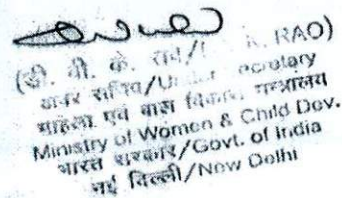 (डी. वी. के. राव/ K. RAO)
अवर सचिव/Under Secretary
महिला एवं बाल विकास मन्त्रालय
Ministry of Women & Child Dev.
भारत सरकार/Govt. of India
नई दिल्ली/New Delhi